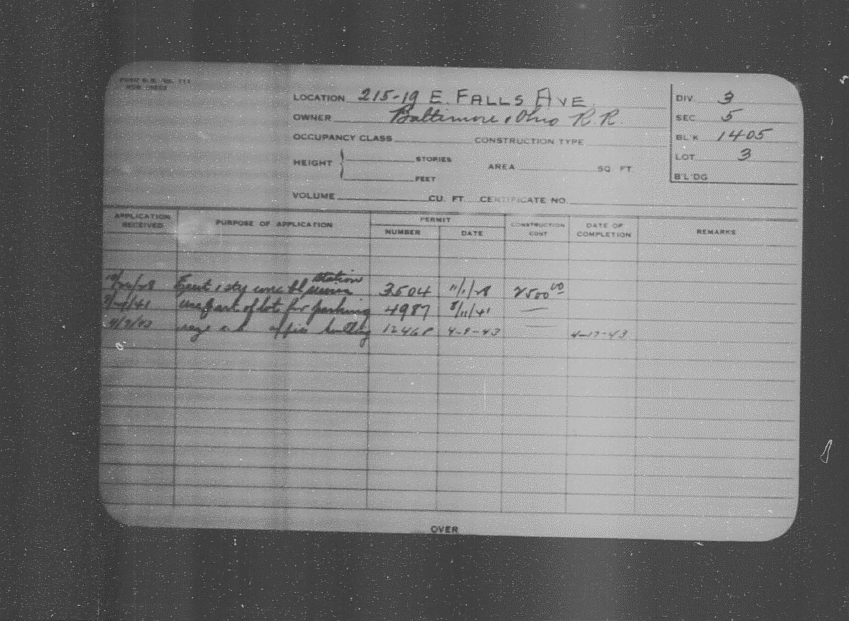 LOCATION 215-19 E. FALLS AVE.
OWNER Baltimore & Ohio R.R.
OCCUPANCY CLASS CONSTRUCTION TYPE
HEIGHT STORIES AREA SQ FT.
FEET
VOLUME CU. FT. CERTIFICATE NO.
DIV. 3
SEC 5
BL'K 1405
LOT 3
B'L'DG
APPLICATION RECEIVED PURPOSE OF APPLICATION PERMIT NUMBER DATE CONSTRUCTION COST DATE OF COMPLETION REMARKS
station
1 sty conc bl 3504 11/1/28 2500.00
use part of lot for parking 4987 8/11/41
office building 1246P 4-9-43 4-17-43
OVER